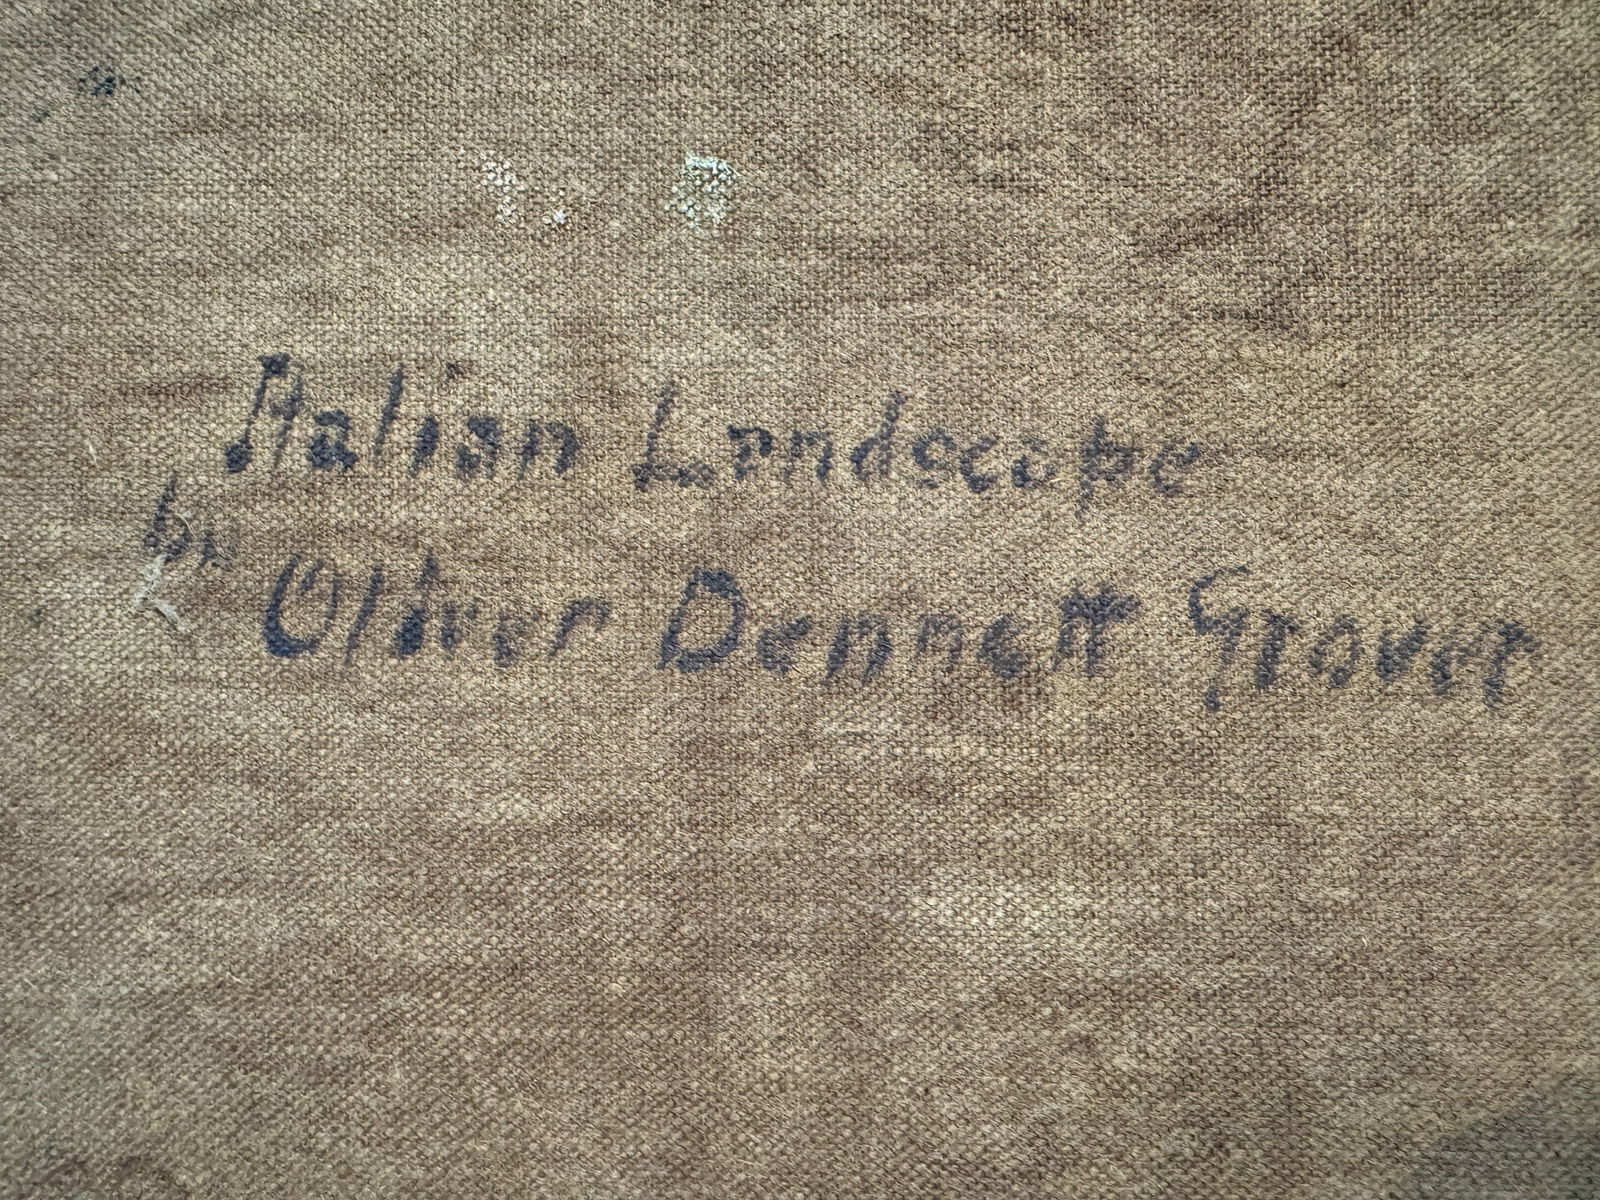 Italian Landscape
by Oliver Dennett Grover